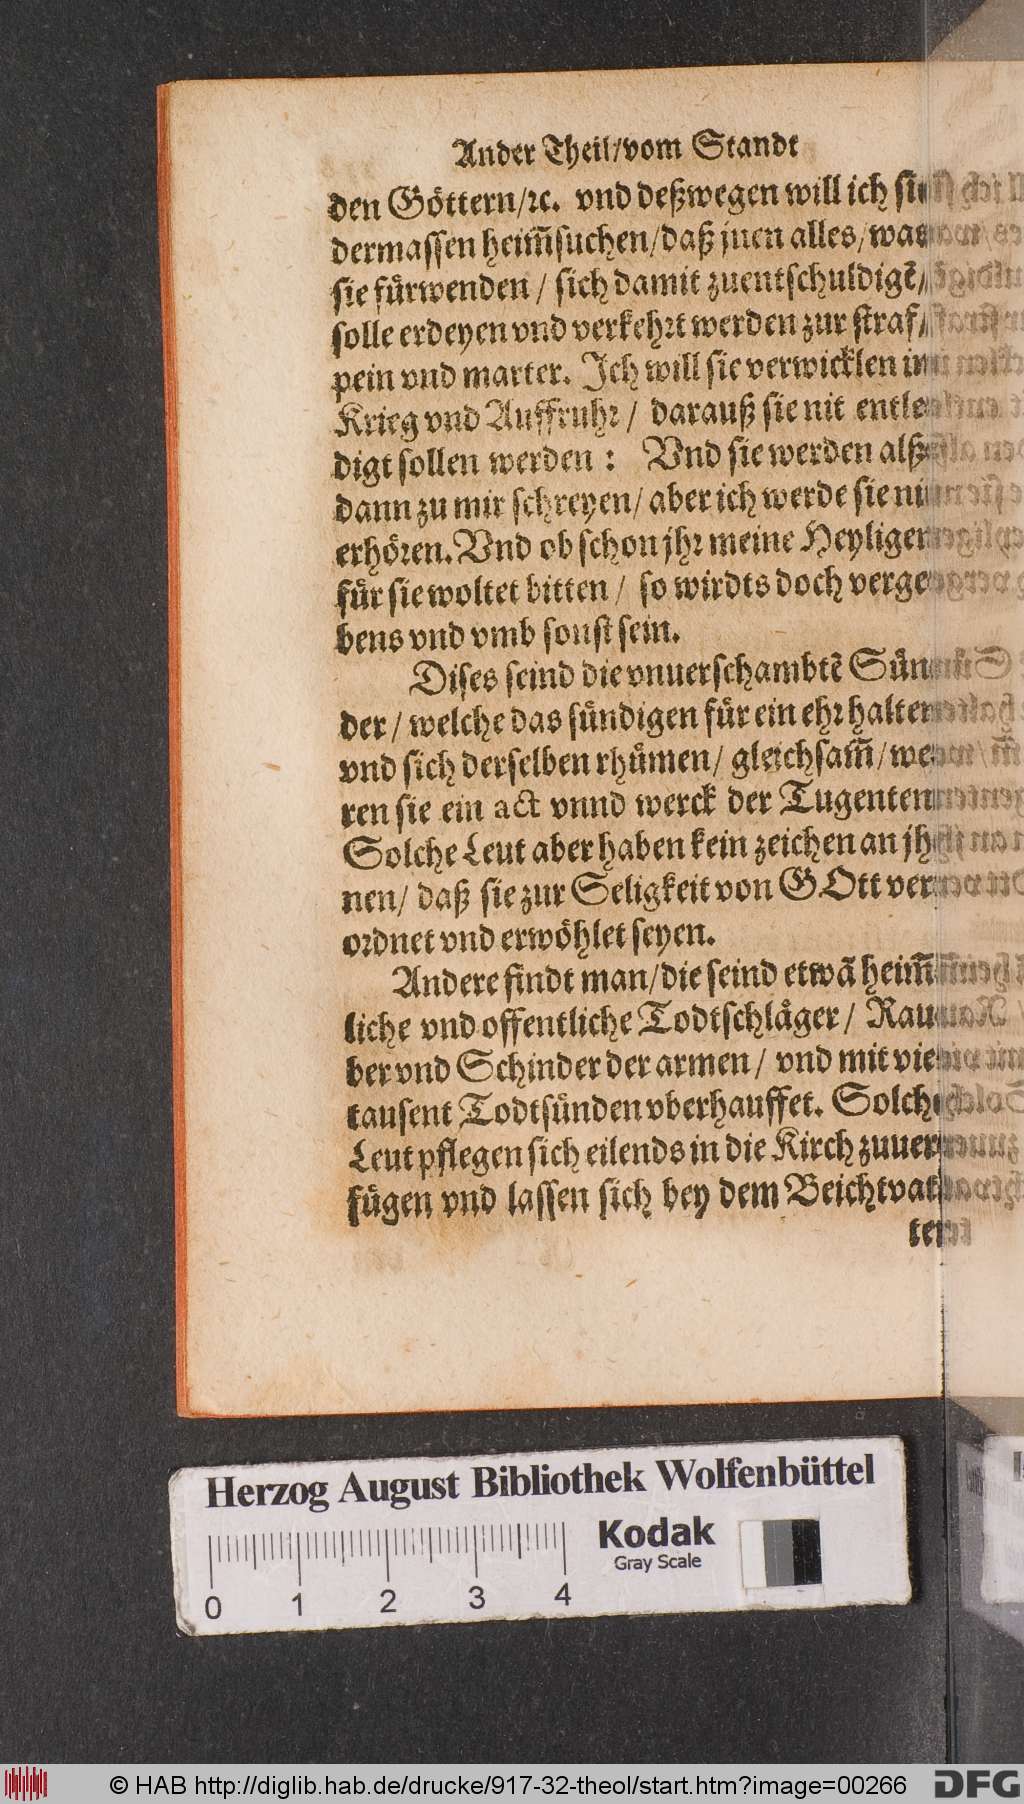 Ander Theil/vom Standt
den Göttern/ꝛc. vnd deßwegen will ich sie
dermassen heim̃suchen/daß jnen alles/was
sie fürwenden / sich damit zuentschuldigẽ/
solle erdeyen vnd verkehrt werden zur straf/
pein vnd marter. Ich will sie verwicklen in
Krieg vnd Auffruhr / darauß sie nit entle-
digt sollen werden : Vnd sie werden alß-
dann zu mir schreyen/ aber ich werde sie nit
erhören. Vnd ob schon jhr meine Heyligen
für sie woltet bitten / so wirdts doch verge-
bens vnd vmb sonst sein.
Dises seind die vnuerschambtẽ Sün-
der / welche das sündigen für ein ehr halten
vnd sich derselben rhümen/ gleichsam̃/ we-
ren sie ein act vnnd werck der Tugenten
Solche Leut aber haben kein zeichen an jh-
nen/ daß sie zur Seligkeit von GOtt ver-
ordnet vnd erwöhlet seyen.
Andere findt man/die seind etwã heim̃-
liche vnd offentliche Todtschläger / Rau-
ber vnd Schinder der armen / vnd mit vie-
tausent Todtsünden vberhauffet. Solche
Leut pflegen sich eilends in die Kirch zuuer-
fügen vnd lassen sich bey dem Beichtvat-
ter
Herzog August Bibliothek Wolfenbüttel
Kodak
Gray Scale
0 1 2 3 4
© HAB http://diglib.hab.de/drucke/917-32-theol/start.htm?image=00266
DFG